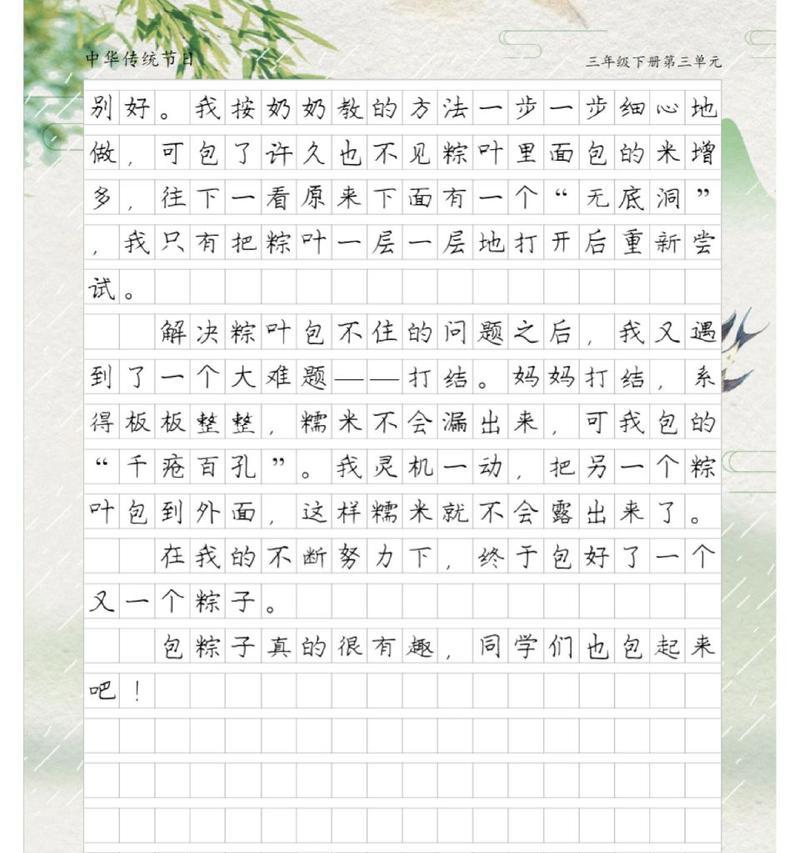 中华传统节日
三年级下册第三单元
别好。我按奶奶教的方法一步一步细心地
做，可包了许久也不见粽叶里面包的米增
多，往下一看原来下面有一个“无底洞”
，我只有把粽叶一层一层地打开后重新尝
试。
解决粽叶包不住的问题之后，我又遇
到了一个大难题——打结。妈妈打结，系
得板板整整，糯米不会漏出来，可我包的
“千疮百孔”。我灵机一动，把另一个粽
叶包到外面，这样糯米就不会露出来了。
在我的不断努力下，终于包好了一个
又一个粽子。
包粽子真的很有趣，同学们也包起来
吧！